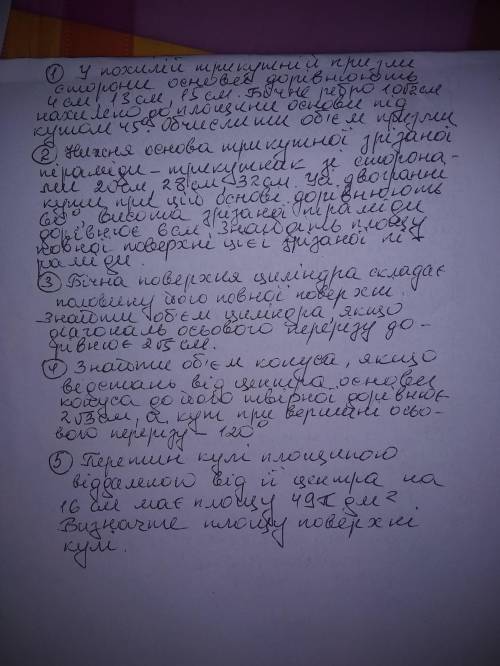 ① У похилій трикутній призми
сторони основы дорівнюють
4 см, 13 см, 15 см. Бічне ребро 10√2 см
нахилено до площини основи під
кутом 45°. Обчислити об'єм призми
② Нижня основа трикутної зрізаної
піраміди – трикутник зі сторона-
ми 20 см, 28 см, 32 см. Усі двогранні
кути при цій основі дорівнюють
60°, висота зрізаної піраміди
дорівнює 6 см. Знайдіть площу
повної поверхні цієї зрізаної пі-
раміди.
③ Бічна поверхня циліндра складає
половину його повної поверхні.
Знайти об'єм циліндра якщо
діагональ осьового перерізу до-
рівнює 2√5 см.
④ Знайти об'єм конуса, якщо
відстань від центра основы
конуса до його твірної дорівнює
2√3 см, а кут при вершині осьо-
вого перерізу – 120°
⑤ Перетин кулі площиною
віддаленою від її центра на
16 см має площу 49π дм²
Визначте площу поверхні
кулі.